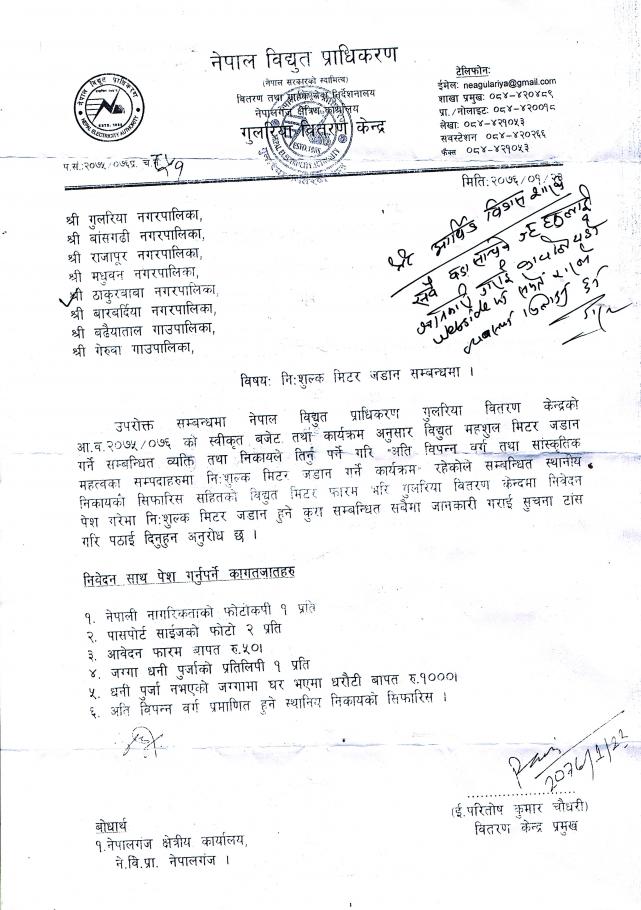 नेपाल विद्युत प्राधिकरण
(नेपाल सरकारको स्वामित्व)
वितरण तथा ग्राहकसेवा निर्देशनालय
नेपालगंज क्षेत्रिय कार्यालय
गुलरिया वितरण केन्द्र
नेपाल विद्युत प्राधिकरण
ESTD. 1985
NEPAL ELECTRICITY AUTHORITY
टेलिफोनः
ईमेल: neagulariya@gmail.com
शाखा प्रमुख: ०८४-४२०४८९
प्रा./नोलाइट: ०८४-४२००९८
लेखा: ०८४-४२१०५३
सवस्टेशन ०८४-४२०२६६
फ्याक्स ०८४-४२१०५३
प.सं.:२०७५/०७६प्र. च.
मिति:२०७६/०१/२२
श्री गुलरिया नगरपालिका,
श्री बांसगढी नगरपालिका,
श्री राजापूर नगरपालिका,
श्री मधुवन नगरपालिका,
श्री ठाकुरबाबा नगरपालिका,
श्री बारबर्दिया नगरपालिका,
श्री बढैयाताल गाउपालिका,
श्री गेरुवा गाउपालिका,
श्री आर्थिक विकास शाखा
विषयः नि:शुल्क मिटर जडान सम्बन्धमा ।
उपरोक्त सम्बन्धमा नेपाल विद्युत प्राधिकरण गुलरिया वितरण केन्द्रको
आ.व.२०७५/०७६ को स्वीकृत बजेट तथा कार्यक्रम अनुसार विद्युत महशुल मिटर जडान
गर्ने सम्बन्धित व्यक्ति तथा निकायले तिर्नु पर्ने गरि "अति विपन्न वर्ग तथा सांस्कृतिक
महत्वका सम्पदाहरुमा नि:शुल्क मिटर जडान गर्ने कार्यक्रम" रहेकोले सम्बन्धित स्थानीय
निकायको सिफारिस सहितको विद्युत मिटर फारम भरि गुलरिया वितरण केन्द्रमा निवेदन
पेश गरेमा नि:शुल्क मिटर जडान हुने कुरा सम्बन्धित सबैमा जानकारी गराई सुचना टांस
गरि पठाई दिनुहुन अनुरोध छ ।
निवेदन साथ पेश गर्नुपर्ने कागतजातहरु
१. नेपाली नागरिकताको फोटोकपी १ प्रति
२. पासपोर्ट साईजको फोटो २ प्रति
३. आवेदन फारम बापत रु.५०।
४. जग्गा धनी पुर्जाको प्रतिलिपी १ प्रति
५. धनी पुर्जा नभएको जग्गामा घर भएमा धरौटी बापत रु.१०००।
६. अति विपन्न वर्ग प्रमाणित हुने स्थानिय निकायको सिफारिस ।
2076/1/22
(ई.परितोष कुमार चौधरी)
वितरण केन्द्र प्रमुख
बोधार्थ
१.नेपालगंज क्षेत्रीय कार्यालय,
ने.वि.प्रा. नेपालगंज ।